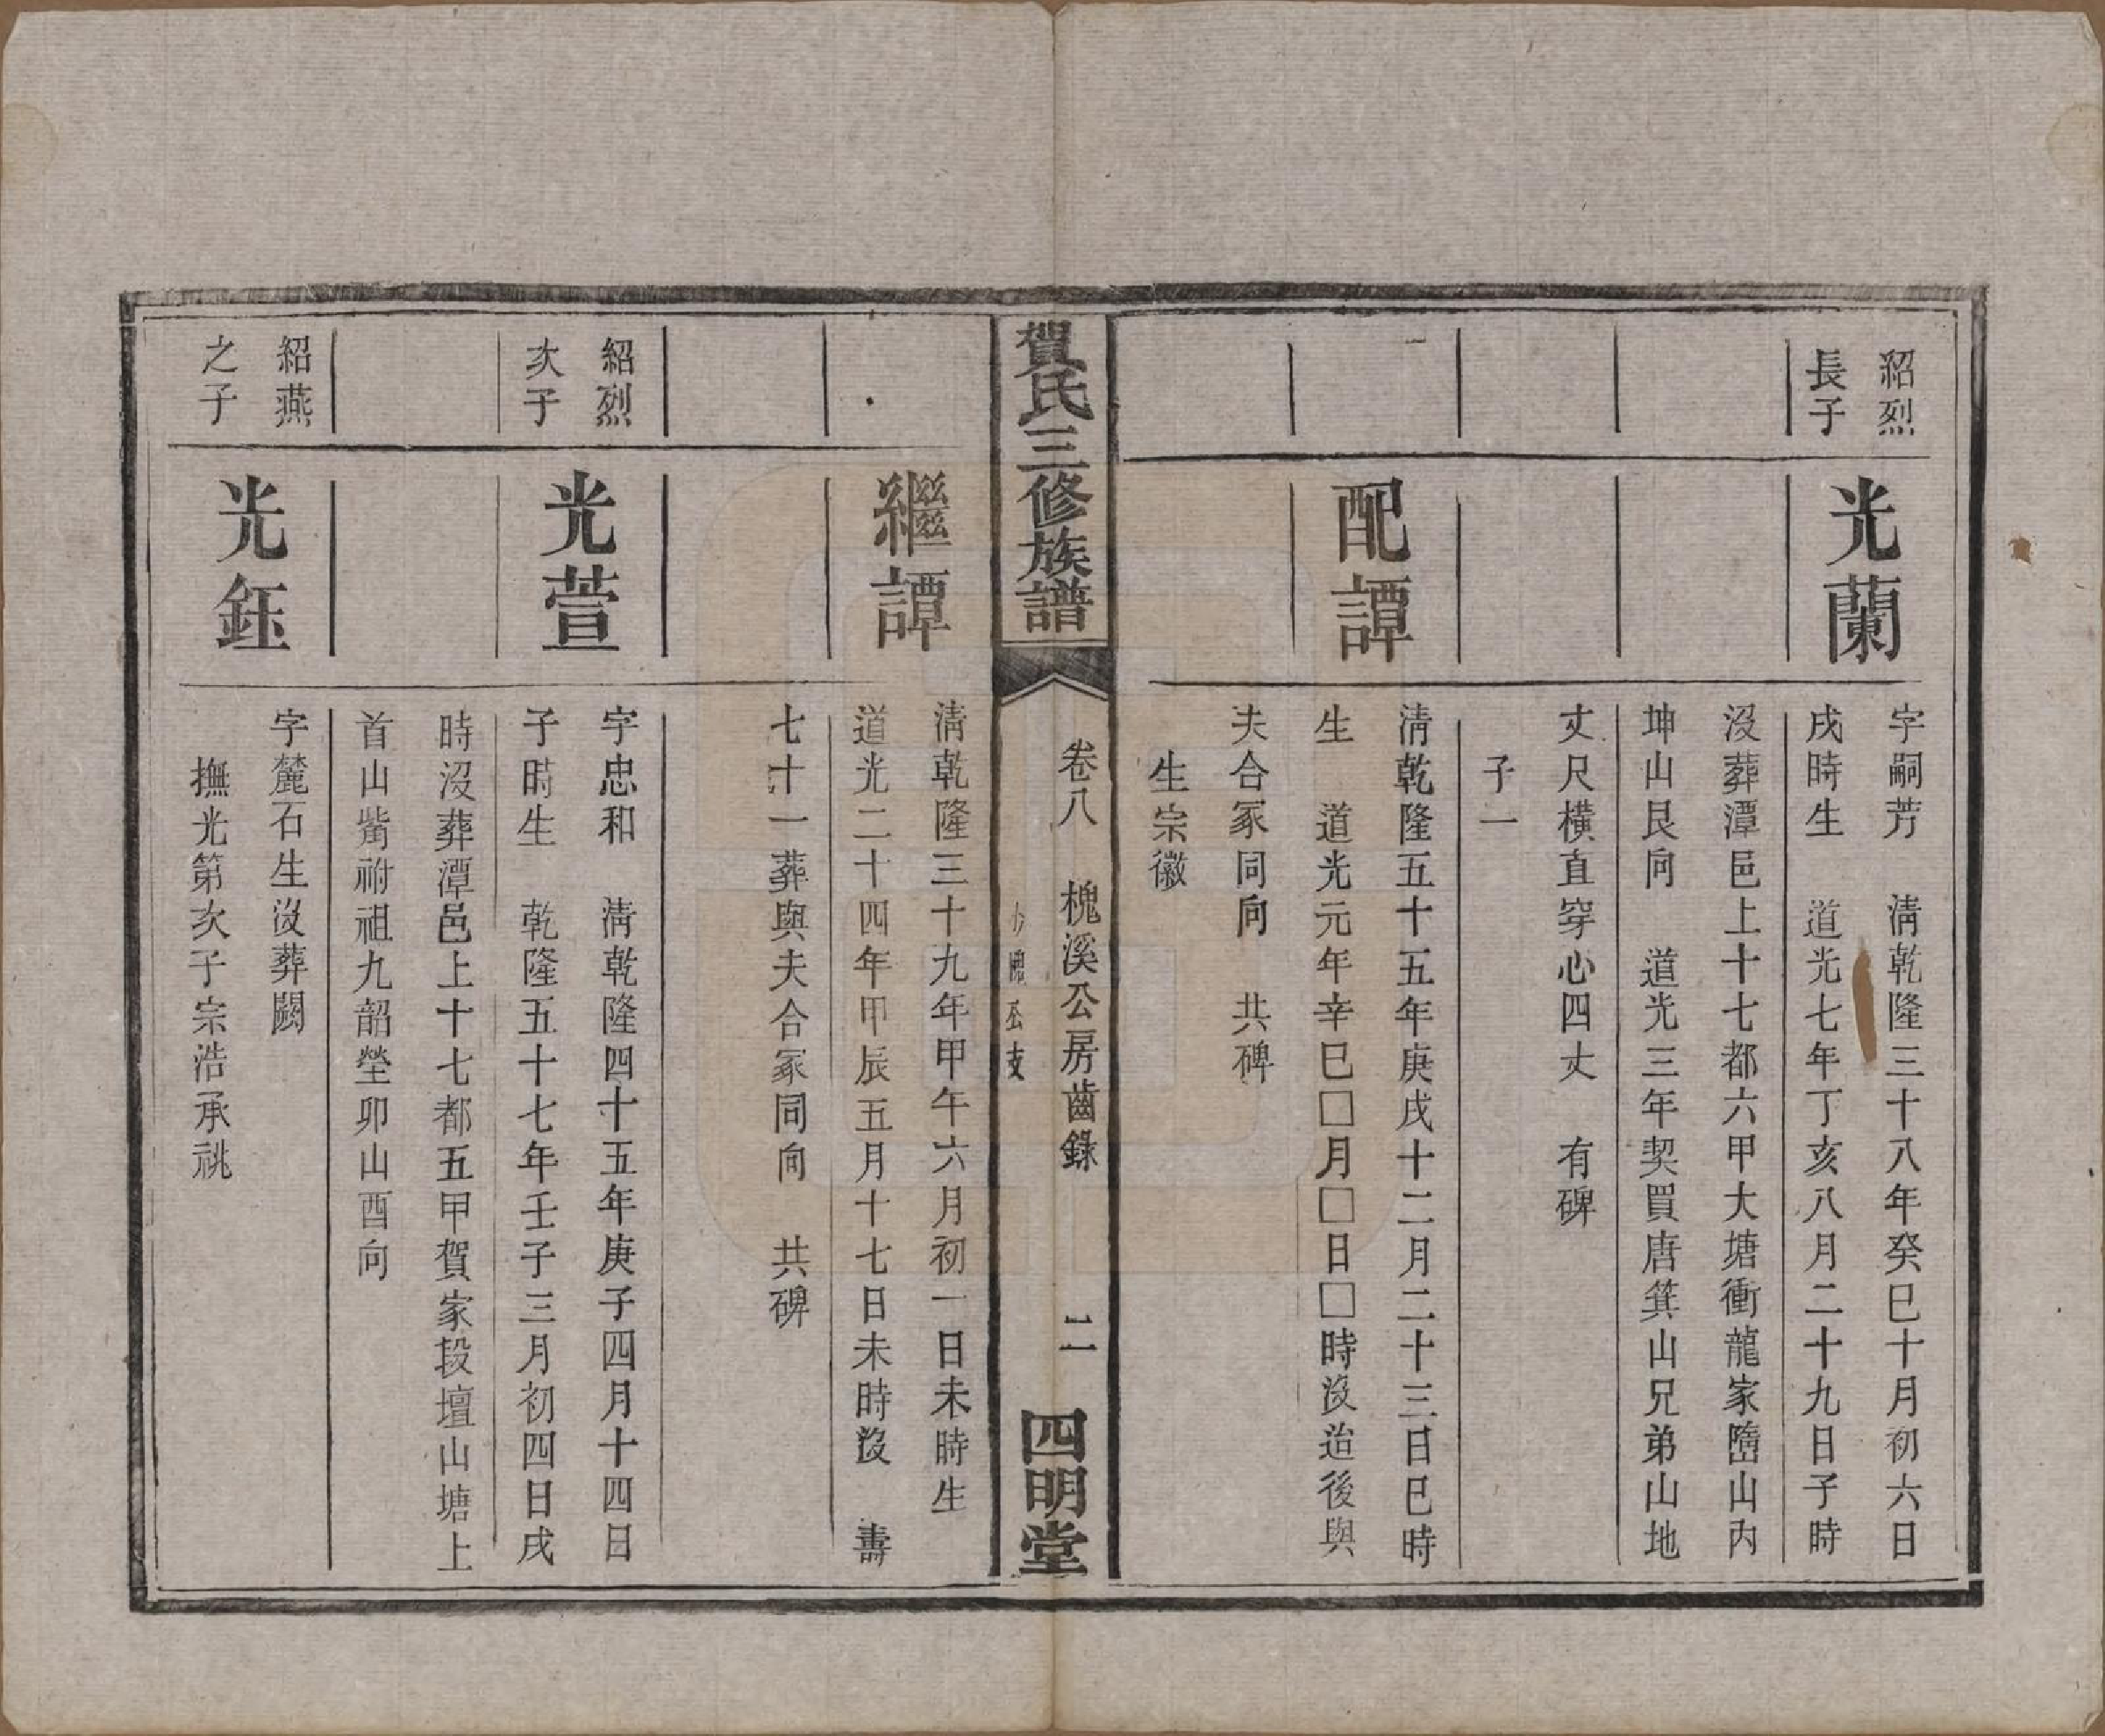 紹烈
長子
光蘭
字嗣芳　清乾隆三十八年癸巳十月初六日
戌時生　道光七年丁亥八月二十九日子時
沒葬潭邑上十七都六甲大塘衝龍家隯山內
坤山艮向　道光三年契買唐箕山兄弟山地
丈尺橫直穿心四丈　有碑
子一
配譚
清乾隆五十五年庚戌十二月二十三日巳時
生　道光元年辛巳□月□日□時沒迨後與
夫合冢同向　共碑
生宗徽
賀氏三修族譜
卷八　槐溪公房齒錄　二
公支
四明堂
繼譚
清乾隆三十九年甲午六月初一日未時生
道光二十四年甲辰五月十七日未時沒　壽
七十一葬與夫合冢同向　共碑
紹烈
次子
光萱
字忠和　清乾隆四十五年庚子四月十四日
子時生　乾隆五十七年壬子三月初四日戌
時沒葬潭邑上十七都五甲賀家段壇山塘上
首山嘴祔祖九韶塋卯山酉向
紹燕
之子
光鈺
字麓石生沒葬闕
撫光第次子宗浩承祧